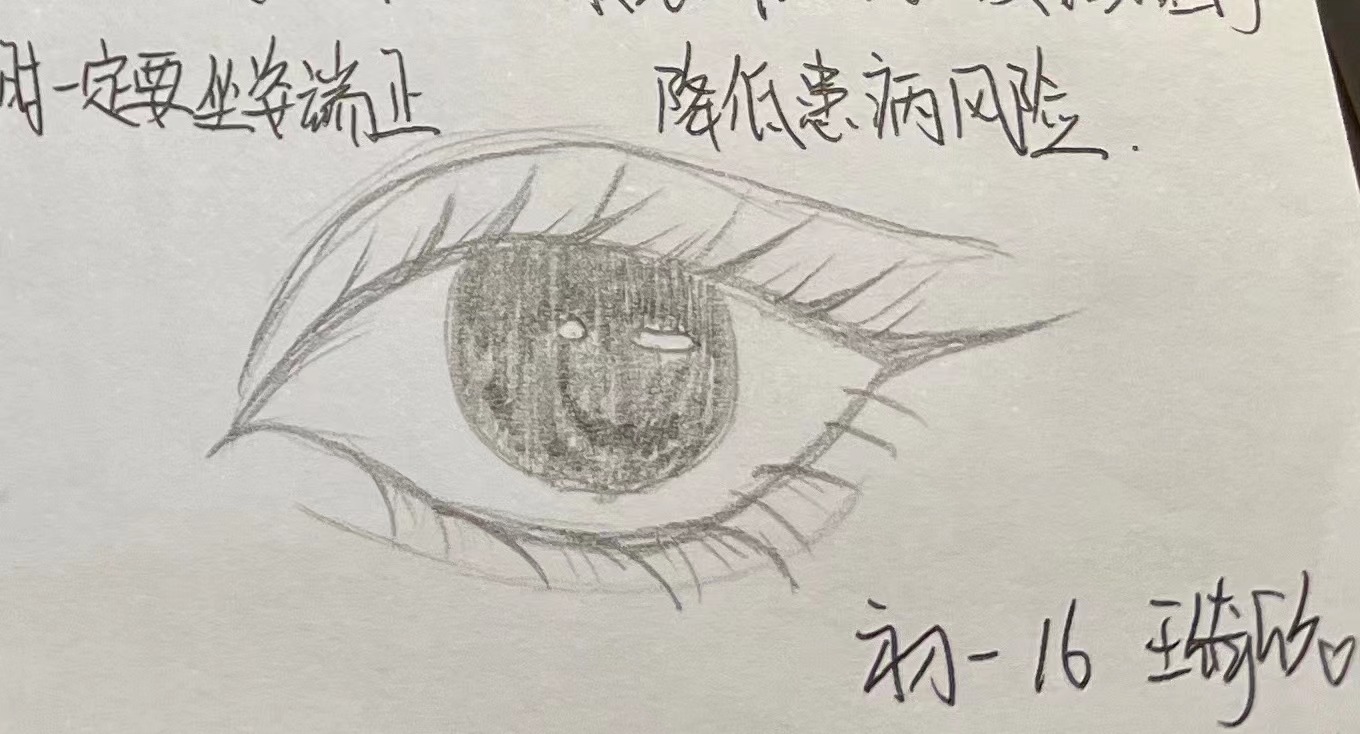 时一定要坐姿端正
降低患病风险.
初一 16 王